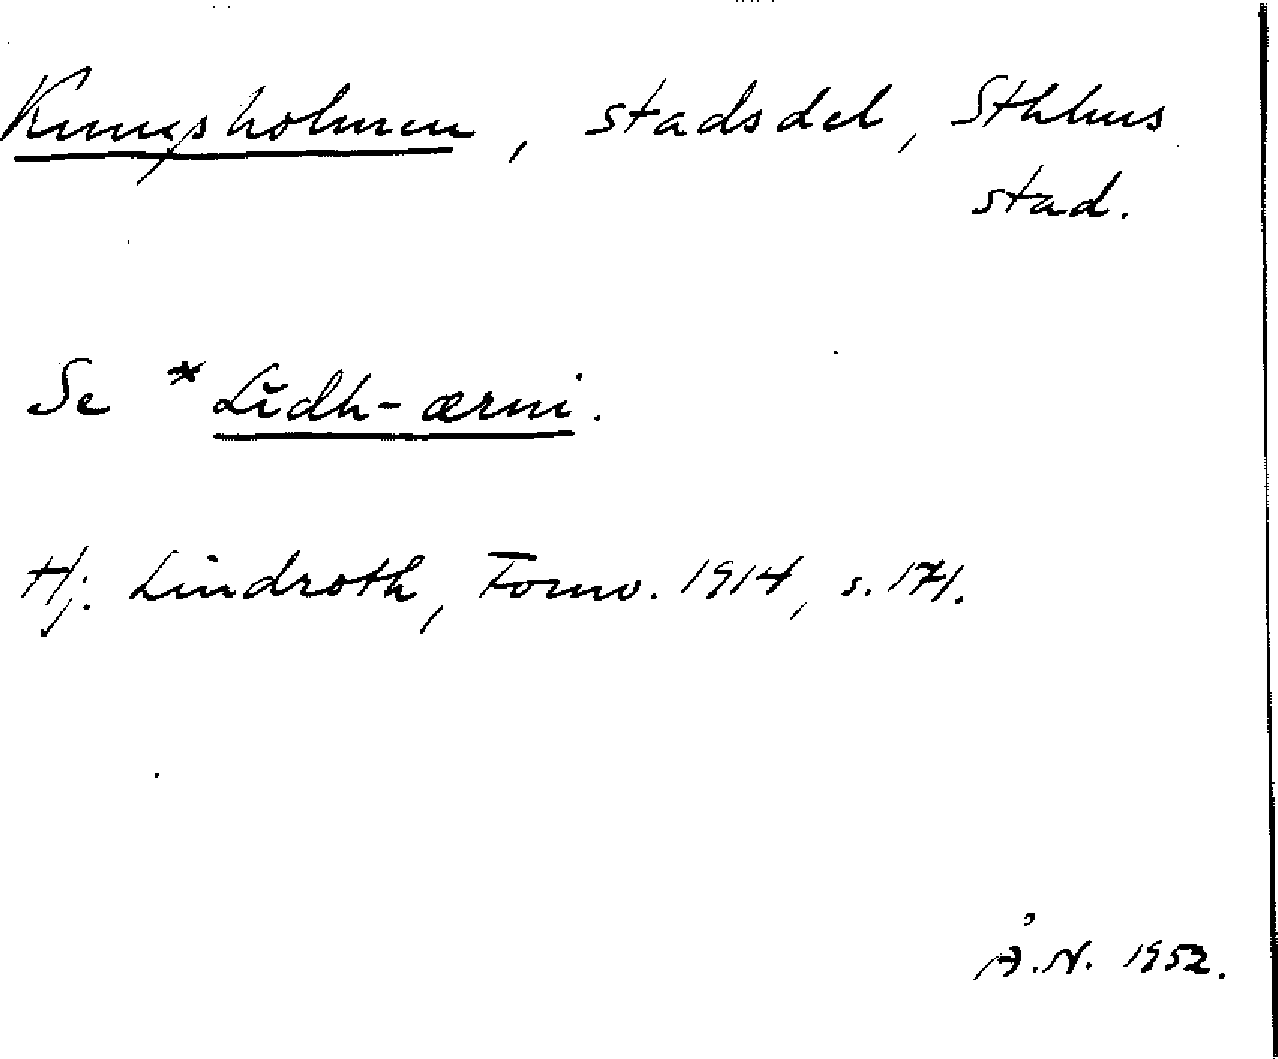 Kungsholmen, stadsdel, Sthlms
stad.
Se *Lidh-ærni.
Hj. Lindroth, Fornv. 1914, s. 171.
Å.N. 1952.